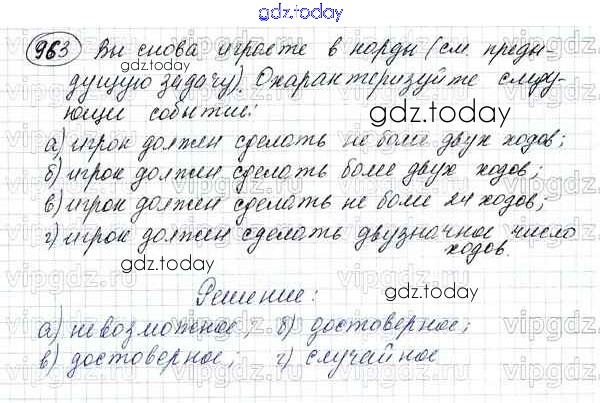 gdz.today
963 Вы снова играете в нарды (см преды-
дущую задачу). Охарактеризуйте следу-
ющие событие:
gdz.today
gdz.today
а) игрок должен сделать не более двух ходов;
б) игрок должен сделать более двух ходов;
в) игрок должен сделать не более 24 ходов;
г) игрок должен сделать двузначное число
ходов.
gdz.today
gdz.today
Решение:
а) невозможное; б) достоверное;
в) достоверное; г) случайное